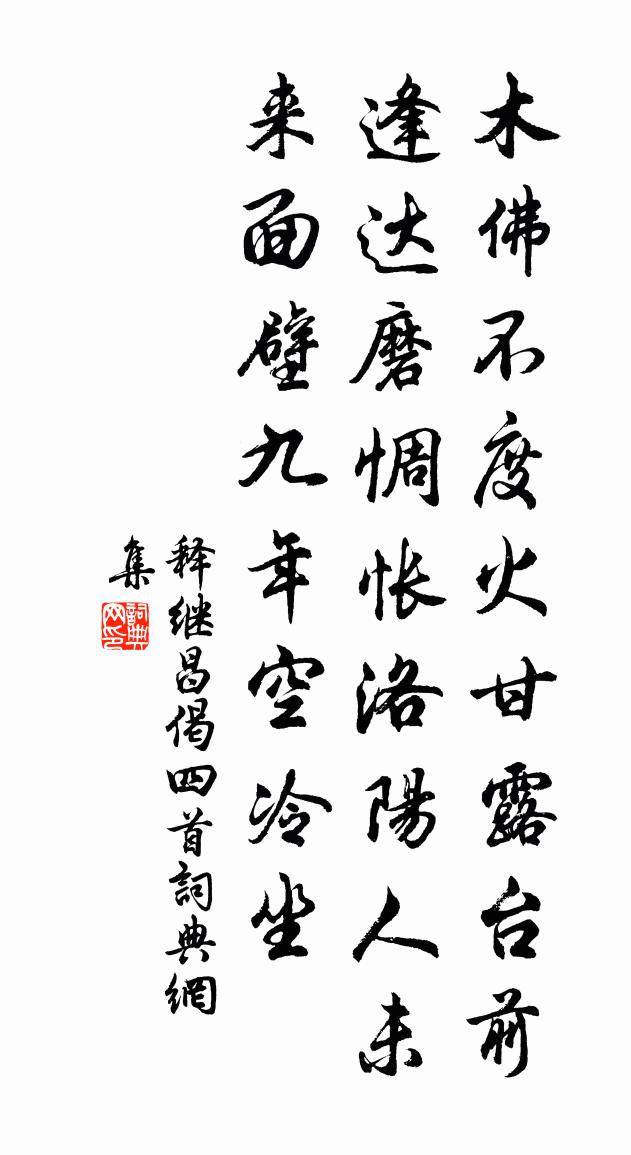 木佛不度火甘露台前
逢达磨惆怅洛陽人未
来面壁九年空冷坐
释继昌偈四首詞典網
集
詞典
网印